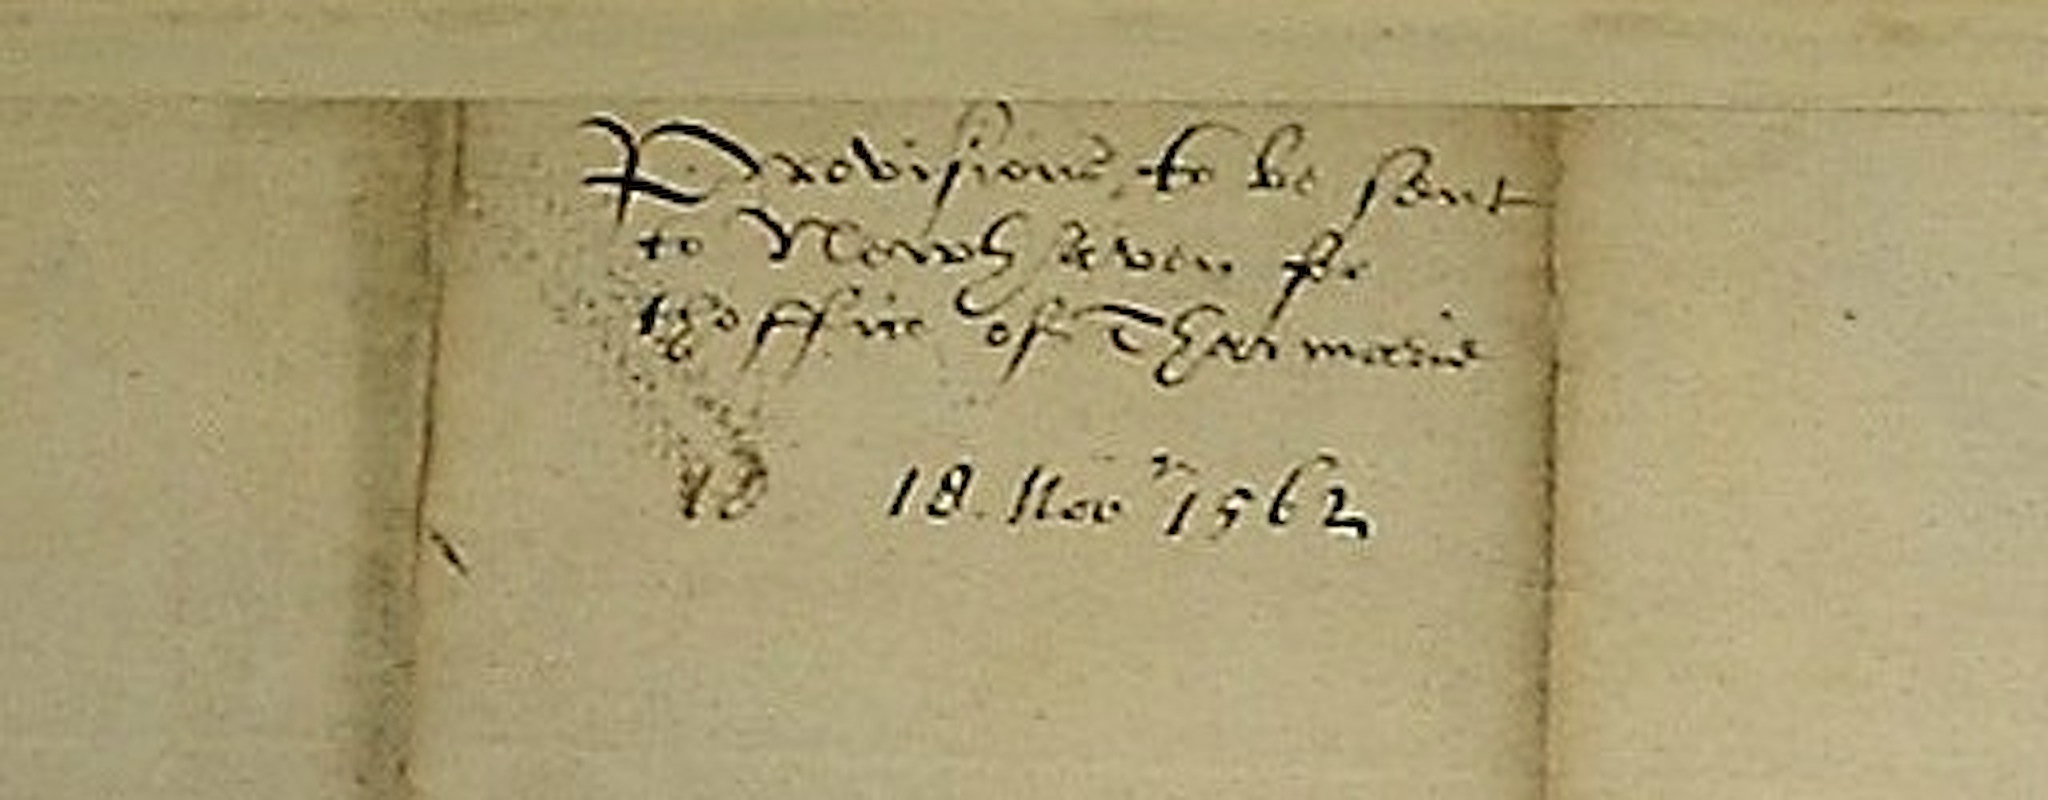 Provisions to be sent
to Newhaven for
thoffice of Tharmarie
18 18. Nov r 1562